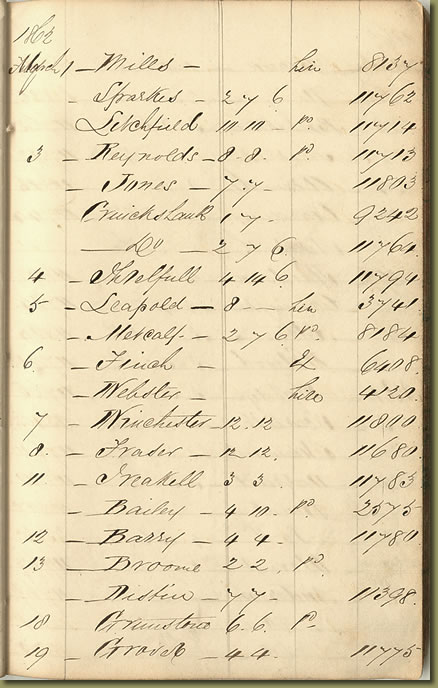 1862
March 1 - Mills - hire 8137
- Sparkes - 2 7 6 11762
Litchfield 10 10 - Pd. 11714
3 - Reynolds - 8 - 8. Pd. 11713
- Jones - 7 - 7 - 11803
Cruickshank 1 7 - 9242
- Do - 2 7 6 11764
4 - Threlfull 4 14 6 11794
5 - Leapold - 8 - hire 3741
- Metcalf - 2 7 6 Pd. 8184
6 - Finch - Ex 6408
- Webster - hire 4120
7 - Winchester - 12 . 12 11800
8 - Frader - 12 12 . 11680
11 - Treakell 3 3 . 11783
- Bailey - 4 10 . Pd. 2575
12 - Barry - 4 4 - 11780
13 - Broome 2 2 . Pd.
- Distin - 7 7 - 11398
18 - Grimstone 6 . 6 . Pd.
19 - Grover - 4 4 . 11775